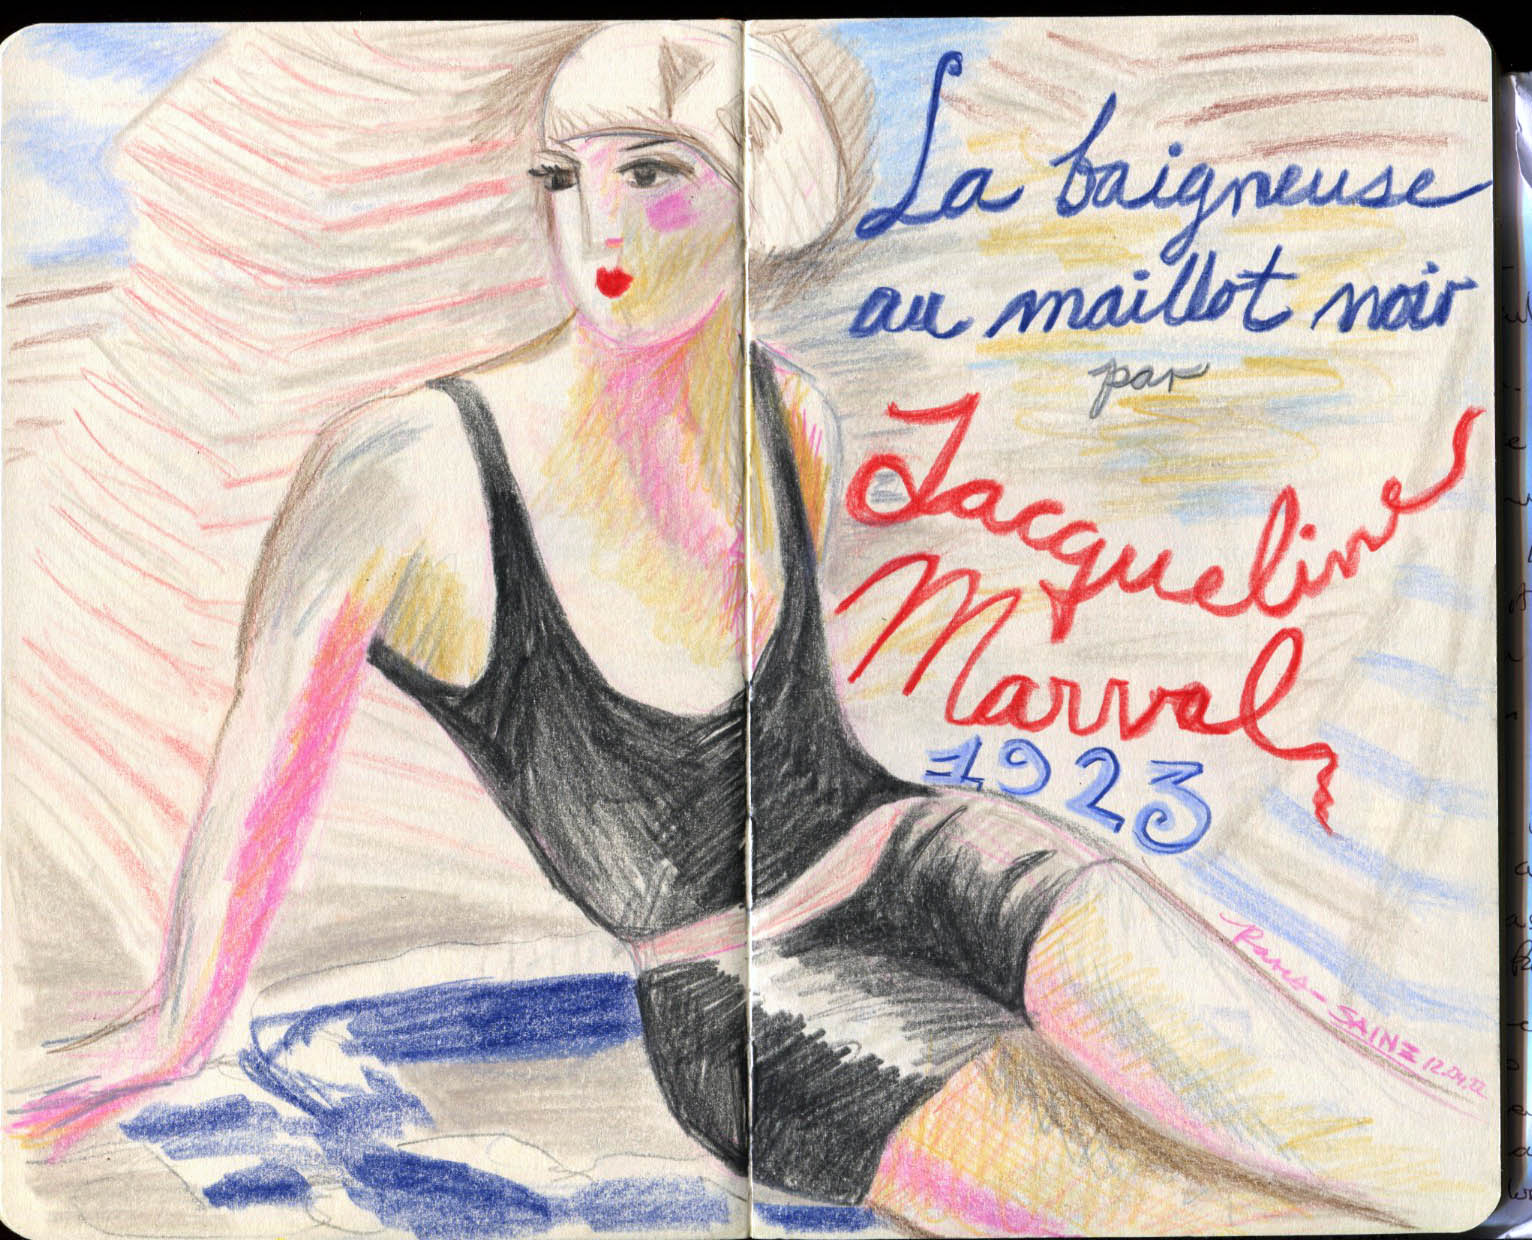 La baigneuse
au maillot noir
par
Jacqueline
Marval
1923
SAINZ 12.04.22